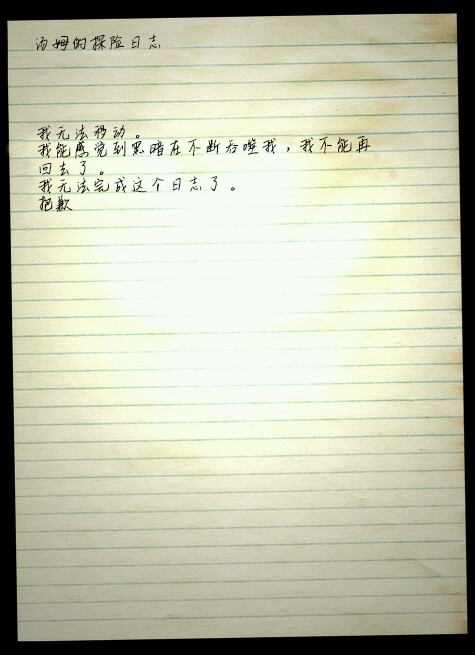 汤姆的探险日志
我无法移动。
我能感觉到黑暗在不断吞噬我，我不能再
回去了。
我无法完成这个日志了。
抱歉